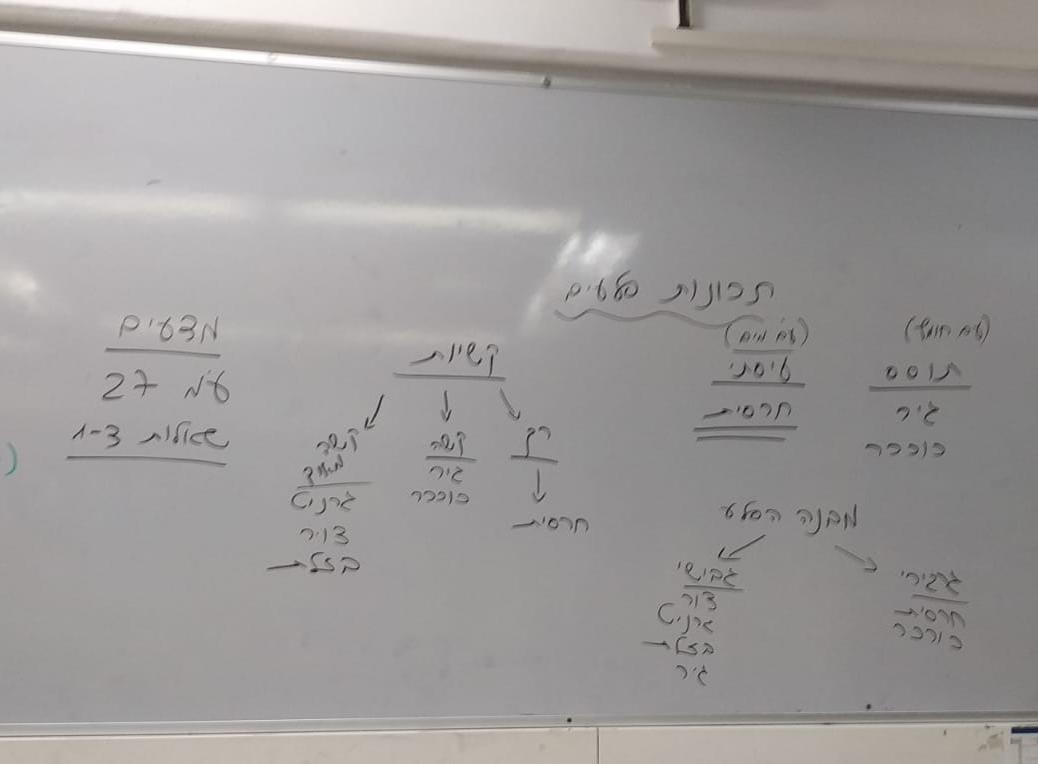 תכונות סלעים
(עם חומץ)
תוסס
גיר
כורכר
(עם מים)
טיסתי
חרסית
קשיות
רך
חרסית
קשה
גיר
כורכר
קשה
מאוד
גרניט
צור
בזלת
מבנה הסלע
גרגירי
חרסית
כורכר
גבישי
צור
גרניט
בזלת
גיר
מצעים
עמ 27
שאלות 1-3